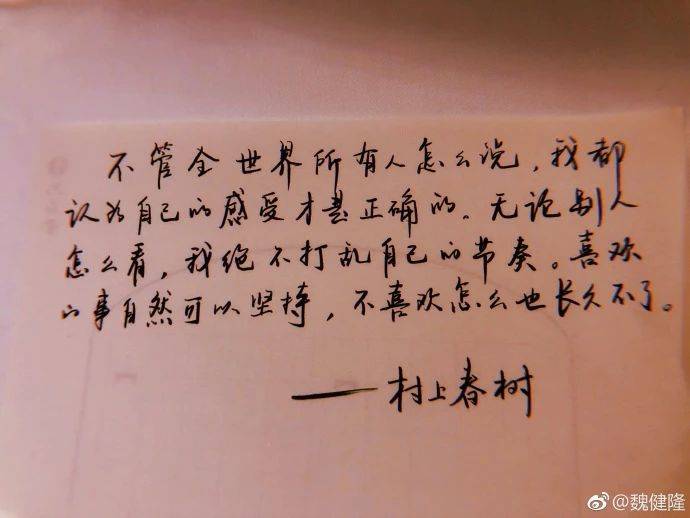 不管全世界所有人怎么说，我都
认为自己的感受才是正确的。无论别人
怎么看，我绝不打乱自己的节奏。喜欢
的事自然可以坚持，不喜欢怎么也长久不了。
——村上春树
@魏健隆